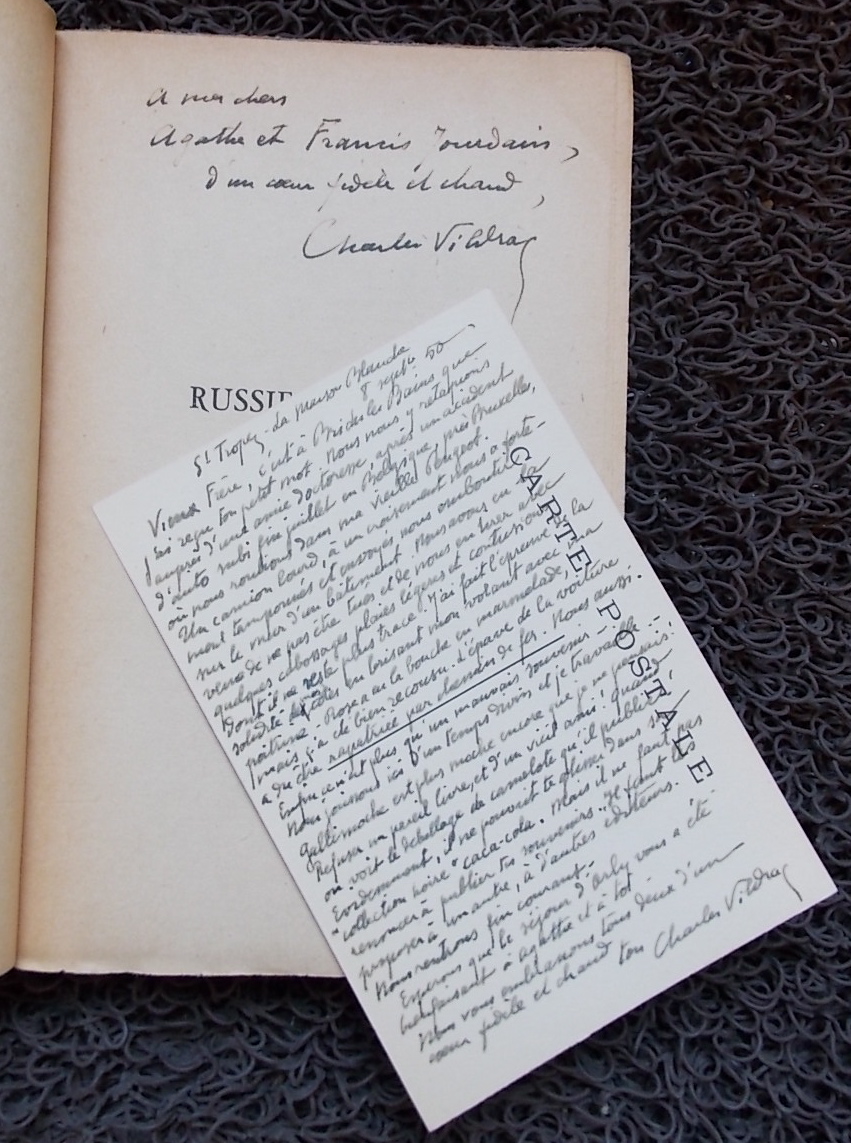 A mes chers
Agathe et Francis Jourdain,
d'un cœur fidèle et chaud,
Charles Vildrac
RUSSIE
CARTE POSTALE
St Tropez - La Maison Blanche
8 septbre 50
Vieux Frère, c'est à Brides les Bains que
j'ai reçu ton petit mot. Nous nous y retapions
auprès d'une amie doctoresse, après un accident
d'auto subi fin juillet en Belgique, près Bruxelles,
où nous roulions dans ma vieille Peugeot.
Un camion lourd, à un croisement nous a forte-
ment tamponnés et envoyés nous emboutir
sur le mur d'un bâtiment. Nous avons eu la
veine de ne pas être tués et de nous en tirer avec
quelques cabossages, plaies légères et contusions
dont il ne reste plus trace. J'ai fait l'épreuve de la
solidité de mes côtes en brisant mon volant avec ma
poitrine. Rose a eu la bouche en marmelade,
mais ç'a été bien recousu. L'épave de la voiture
a du être rapatriée par chemin de fer. Nous aussi.
Enfin ce n'est plus qu'un mauvais souvenir -
Nous jouissons ici d'un temps divin et je travaille -
Gallimoche est plus moche encore que je ne pensais.
Refuser un pareil livre, et d'un vieil ami! Quand
on voit le déballage de camelote qu'il publie!
Évidemment, il ne pouvait te glisser dans sa
"collection noire" caca-cola. Mais il ne faut pas
renoncer à publier tes souvenirs. Il faut les
proposer à un autre, à d'autres éditeurs.
Nous rentrons fin courant.
Espérons que le séjour d'Orly vous a été
bienfaisant à Agathe et à toi -
Nous vous embrassons tous deux d'un
cœur fidèle et chaud ton Charles Vildrac